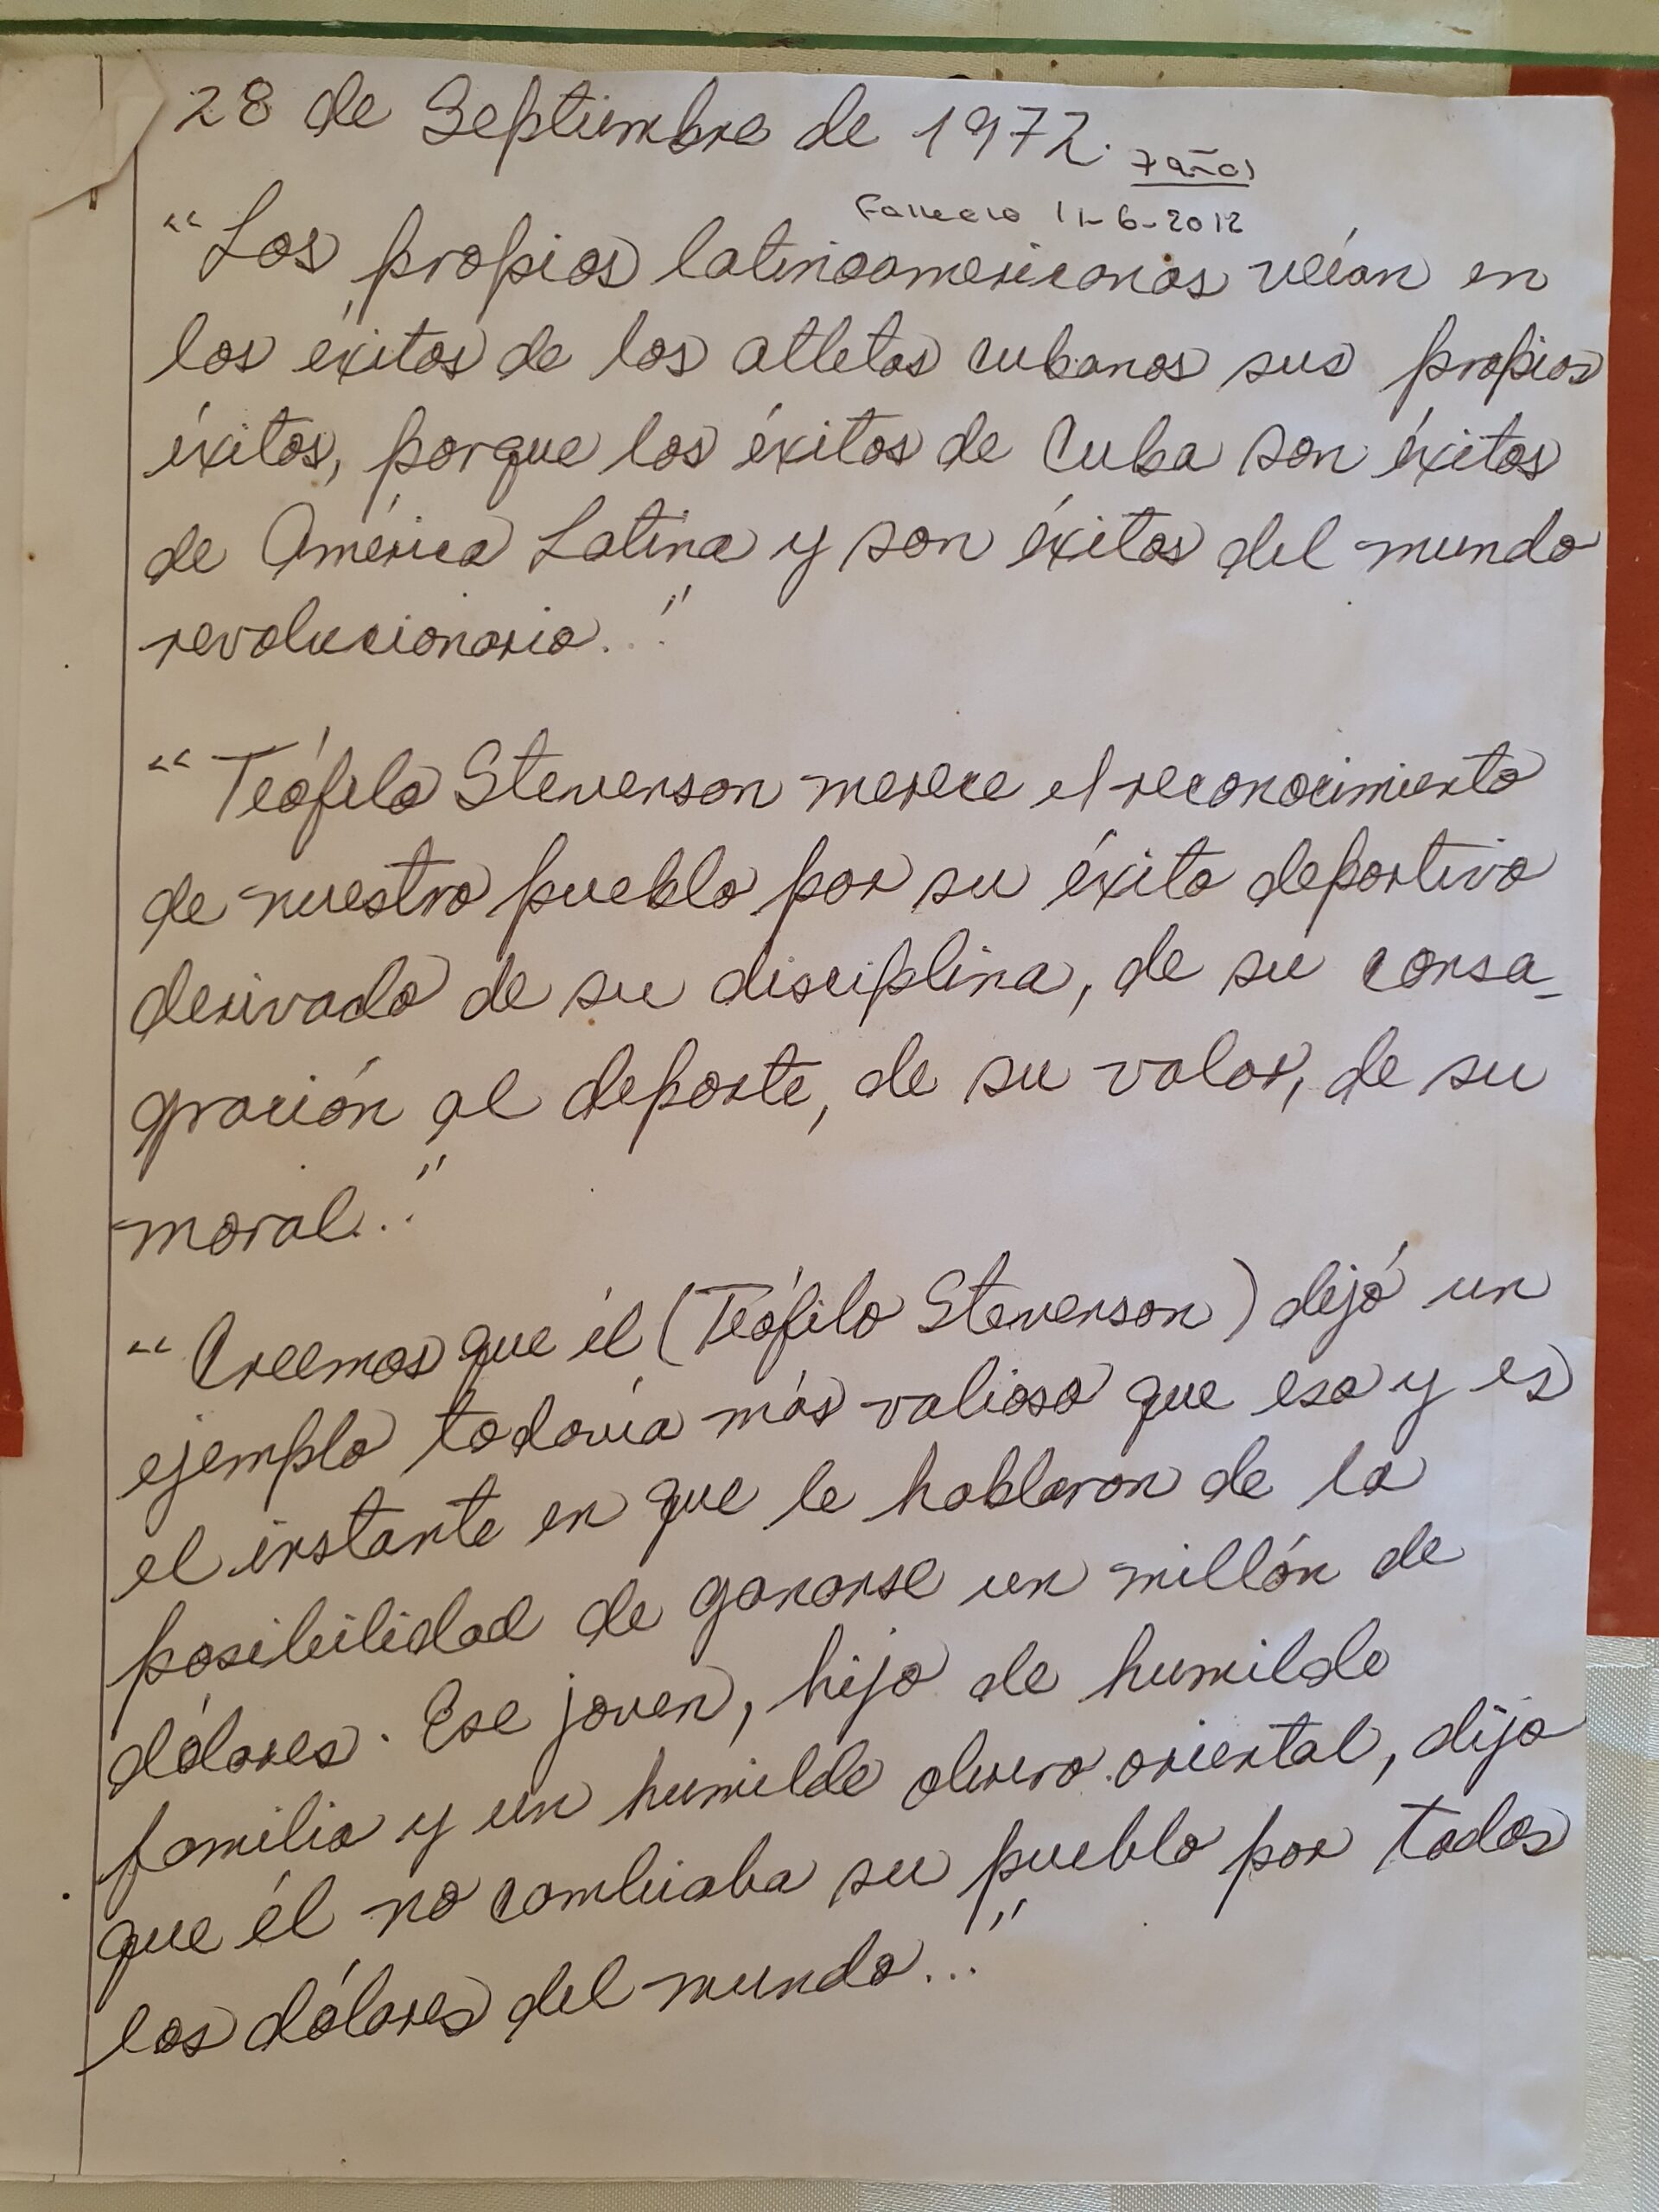 28 de Septiembre de 1972.
7 años
Fallecio 11-6-2012
"Los propios latinoamericanos veían en
los éxitos de los atletas cubanos sus propios
éxitos, porque los éxitos de Cuba son éxitos
de América Latina y son éxitos del mundo
revolucionario..."
"Teófilo Stevenson merece el reconocimiento
de nuestro pueblo por su éxito deportivo
derivado de su disciplina, de su consa-
gración al deporte, de su valor, de su
moral..."
"Creemos que él (Teófilo Stevenson) dejó un
ejemplo todavía más valioso que eso y es
el instante en que le hablaron de la
posibilidad de ganarse un millón de
dólares. Ese joven, hijo de humilde
familia y un humilde obrero oriental, dijo
que él no cambiaba su pueblo por todos
los dólares del mundo..."